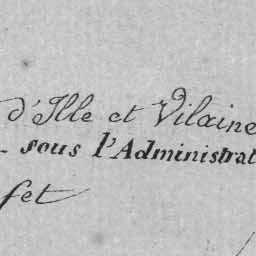 d'Ille et Vilaine
- sous l'Administrat
fet